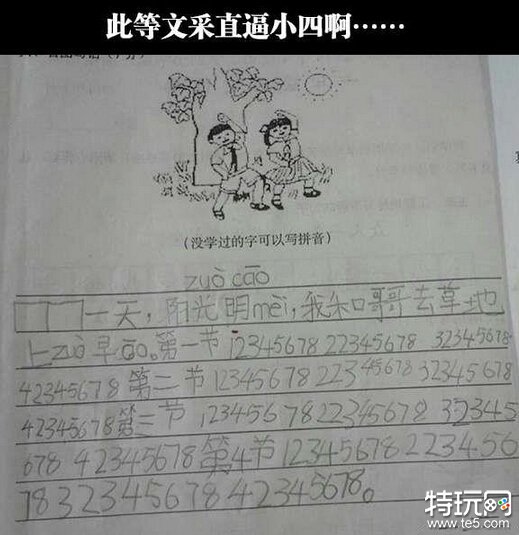 此等文采直逼小四啊……
(没学过的字可以写拼音)
zuò cāo
一天，阳光明mèi，我和哥哥去草地
上zuò早cāo。第一节 12345678 22345678 32345678
42345678 第二节 12345678 22345678 32345678
42345678 第三节，12345678 22345678 32345
678 42345678 第4节 12345678 223456
78 32345678 42345678。
特玩网
www.te5.com